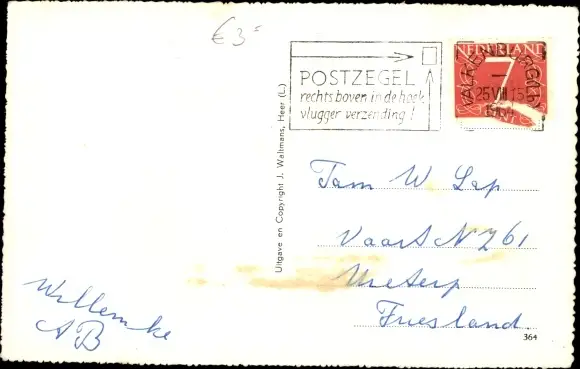 € 3=
POSTZEGEL
rechts boven in de hoek
vlugger verzending!
NEDERLAND
7
CENT
VALKENBURG
25 VIII 15
Uitgave en Copyright J. Waltmans, Heer (L.)
Fam W Lap
Vaart NZ 61
Ureterp
Friesland.
Willemke
AB
364